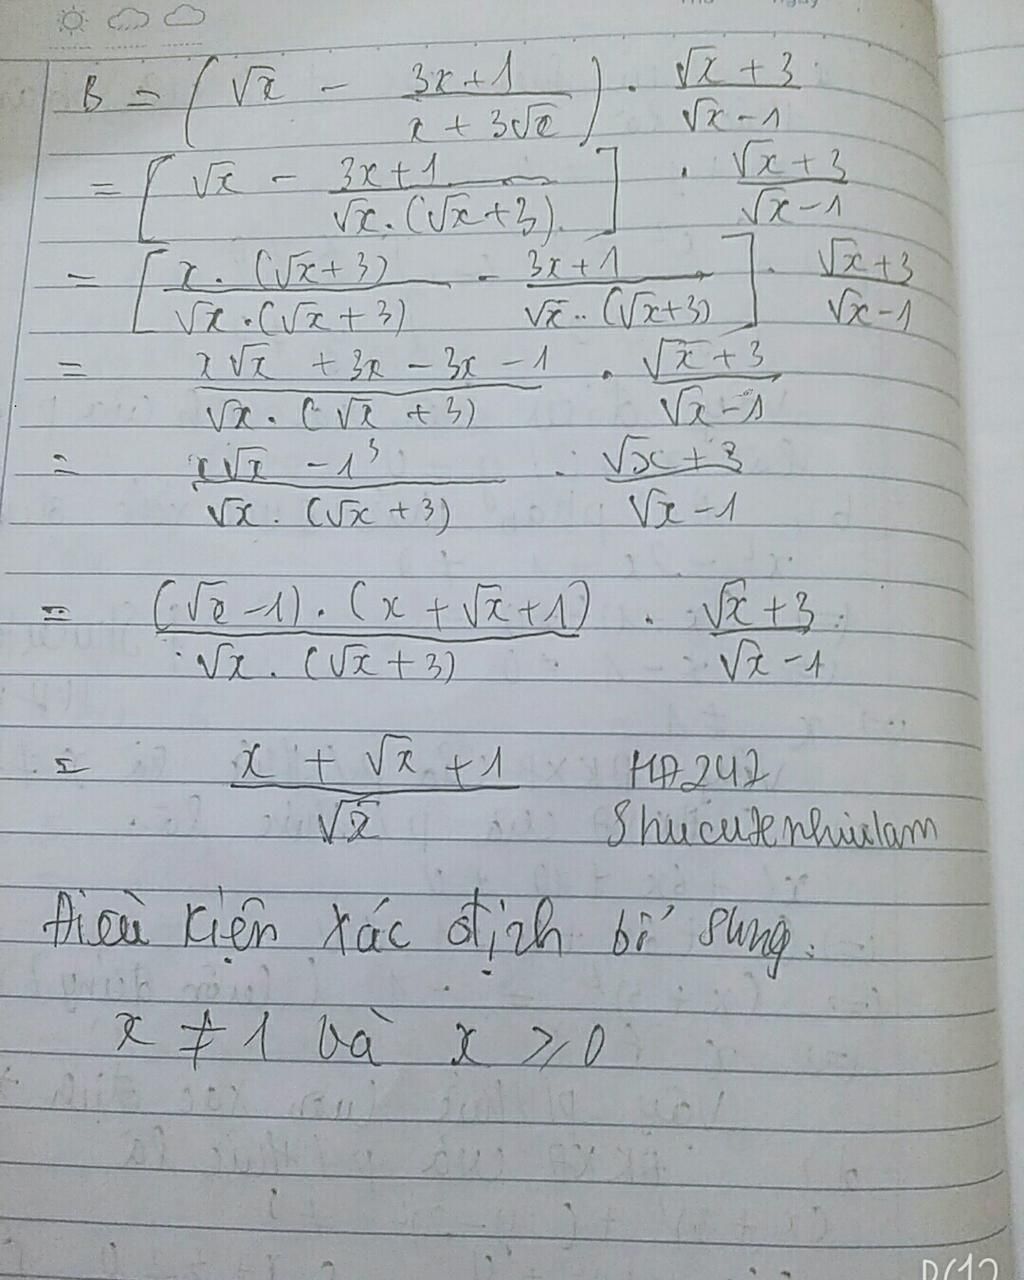 B = ( √x - (3x+1)/(x + 3√x) ) . (√x + 3)/(√x - 1)
= [ √x - (3x+1)/(√x.(√x+3)) ] . (√x + 3)/(√x - 1)
= [ (x.(√x+3))/(√x.(√x+3)) - (3x+1)/(√x..(√x+3)) ] . (√x+3)/(√x-1)
= (x√x + 3x - 3x - 1)/(√x.(√x + 3)) . (√x + 3)/(√x - 1)
= (x√x - 1³)/(√x.(√x + 3)) . (√x + 3)/(√x - 1)
= ((√x - 1).(x + √x + 1))/(√x.(√x + 3)) . (√x + 3)/(√x - 1)
= (x + √x + 1)/√x
HA247
Shucutenhiulam
Điều kiện xác định bổ sung:
x ≠ 1 và x ⩾ 0